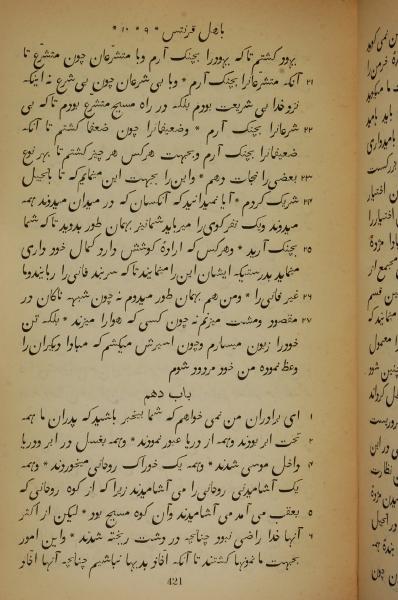 باهل قرنتس * ۹ * ۱۰ *
یهود کشتم تا که یهود را بچنک آرم وبا متشرّعان چون متشرّع تا
۲۱ آنکه متشرّعانرا بچنک آرم * وبا بی شرعان چون بی شرع نه اینکه
نزد خدا بی شریعت بودم بلکه در راه مسیح متشرع بودم تا که بی
۲۲ شرعانرا بچنک آرم * وضعیفانرا چون ضعفا کشتم تا آنکه
ضعیفانرا بچنک آرم وبجهت هرکس هر چیز کشتم تا بهر نوع
۲۳ بعضی را نجات دهم * واین را بجهت این مینمایم که تا بانجیل
۲۴ شریک کردم * آیا نمیدانید که آنکسان که در میدان میدوند همه
میدوند ویک نفر کوی را میرباید شما نیز بهمان طور بدوید تا که شما
۲۵ بچنک آرید * وهرکس که ارادهٔ کوشش دارد کمال خود داری
مینماید بدرستیکه ایشان این را مینمایند تا که سربند فانی را ربایند وما
۲۶ غیر فانی را * ومن هم بهمان طور میدوم نه چون شبهه ناکان در
۲۷ مقصود ومشت میزنم نه چون کسی که هوا را میزند * بلکه تن
خود را زبون میسازم وچون اسیرش میکشم که مبادا دیکران را
وعظ نموده من خود مردود شوم
باب دهم
۱ ای برادران من نمی خواهم که شما بیخبر باشید که پدران ما همه
۲ تحت ابر بودند وهمه از دریا عبور نمودند * وهمه بغسل در ابر ودریا
۴ داخل موسی شدند * وهمه یک خوراک روحانی میخوردند * وهمه
یک آشامیدنی روحانی را می آشامیدند زیرا که از کوه روحانی که
۵ بعقب می آمد می آشامیدند وآن کوه مسیح بود * لیکن از اکثر
۶ آنها خدا راضی نبود چنانچه در دشت ریخته شدند * واین امور
بجهت ما نمونها کشتند تا آنکه آفاق بدیها نباشیم چنانچه آنها
421